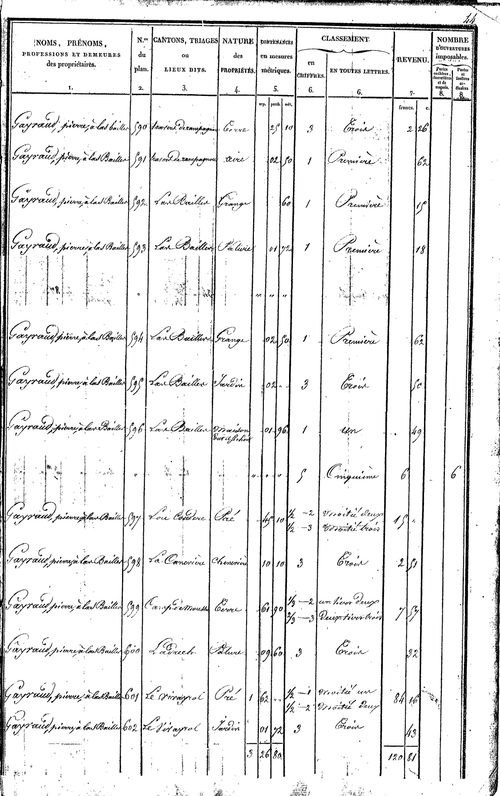 24
NOMS, PRÉNOMS, PROFESSIONS ET DEMEURES des propriétaires. N.os du plan. CANTONS, TRIAGES ou LIEUX DITS. NATURE des PROPRIÉTÉS. CONTENANCES en mesures métriques. CLASSEMENT en CHIFFRES. EN TOUTES LETTRES. REVENU. NOMBRE D'OUVERTURES imposables.
1. 2. 3. 4. 5. 6. 6. 7. 8. 8.
francs. c.
Gayraud, pierre, à las Bailles 590 Terre 25 10 3 Trois 2 26
Gayraud, pierre, à las Bailles 591 aire 02 50 1 Première 62
Gayraud, pierre, à las Bailles 592 Las Bailles Grange 60 1 Première 15
Gayraud, pierre, à las Bailles 593 Las Bailles Pature 01 72 1 Première 18
" " "
Gayraud, pierre, à las Bailles 594 Las Bailles Grange 02 50 1 Première 62
Gayraud, pierre, à las Bailles 595 Las Bailles Jardin 02 " 3 Trois 50
Gayraud, pierre, à las Bailles 596 Las Bailles maison 01 96 1 un 49
" " " 5 Cinquième 6 " 6
Gayraud, pierre, à las Bailles 597 Pré 45 10 1/2 - 2 moitié deux 15 "
1/2 - 3 moitié trois
Gayraud, pierre, à las Bailles 598 La Canevière Chenevière 10 10 3 Trois 2 51
Gayraud, pierre, à las Bailles 599 Terre 61 90 1/3 - 2 un tiers deux 7 57
2/3 - 3 Deux tiers trois
Gayraud, pierre, à las Bailles 600 Pature 09 60 3 Trois 32
Gayraud, pierre, à las Bailles 601 Le Virayrol Pré 1 62 " 1/2 - 1 moitié un 84 16
1/2 - 2 moitié deux
Gayraud, pierre, à las Bailles 602 Le Virayrol Jardin 01 72 3 Trois 43
3 26 80 120 81